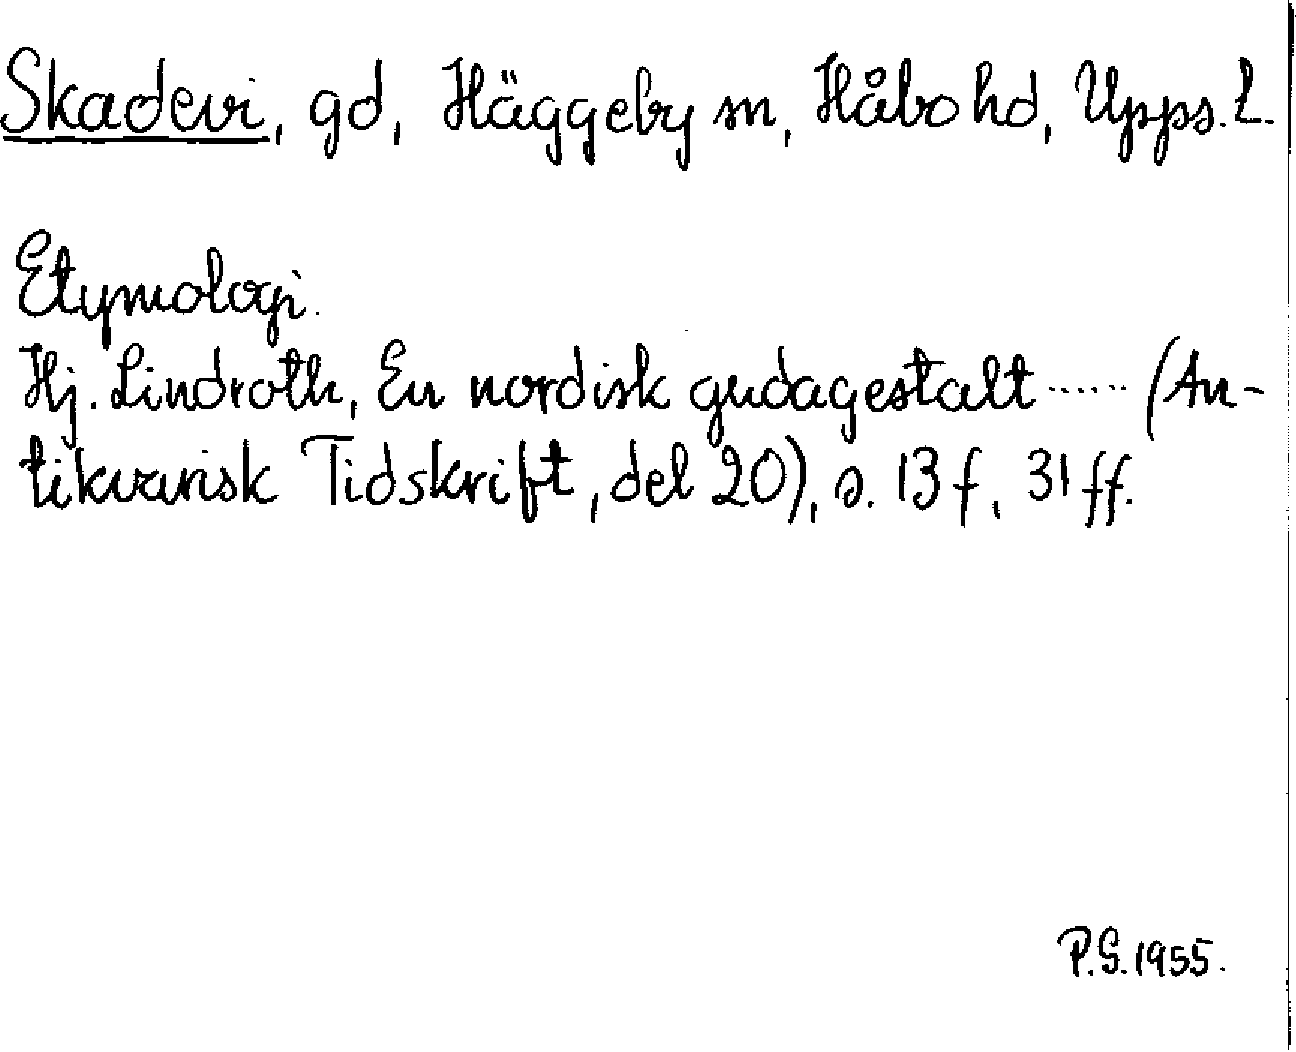 Skadevi, gd, Häggeby sn, Håbo hd, Upps. L.
Etymologi.
Hj. Lindroth, En nordisk gudagestalt ...... (An-
tikvarisk Tidskrift, del 20), s. 13 f, 31 ff.
P.G. 1955.